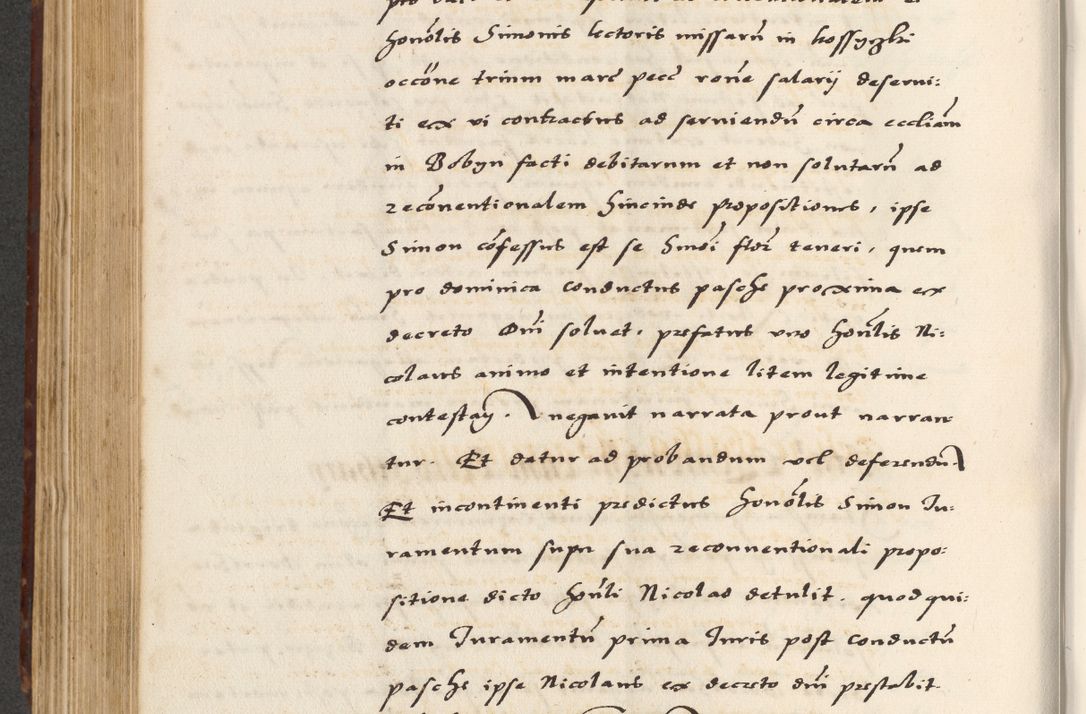 honolis Simonis lectoris missarū in kossyczki
occōne trium marc pecc rone salarij deserui:
ti ex vi contractus ad serviendū circa eccliam
in Bobyn facti debitarum et non solutarū ad
reconventionalem hincinde propositiones, ipse
Simon cōfessus est se hmōi flor teneri, quem
pro dominica conductus pasche proxima ex
decreto Dni soluet. prefatus vero honlis Ni:
colaus animo et intentione litem legitime
contestan. negauit narrata prout narran
tur. Et datur ad probandum vel deferendū
Et incontinenti predictus honolis Simon Iu:
ramentum supr sua reconuentionali propo:
sitione dicto honli Nicolao detulit. quod qui:
dem Iuramentū prima Iuris post conductū
pasche ipse Nicolaus ex decreto dni prestabit